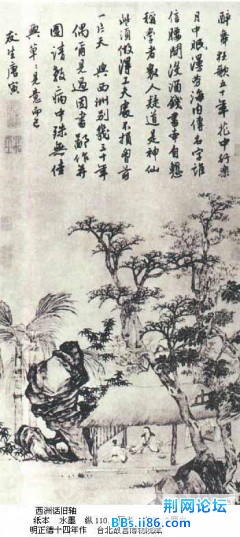 醉舞狂歌五十年花中行樂
月中眠漫勞海內傳名字誰
信腰間沒酒錢書本自慙
稱學者衆人疑道是神仙
些須做得工夫處不損胸前
一片天 與西洲別幾三十年
偶爾見過因書鄙作并
圖請教病中殊無佳
興草草見意而已
友生唐寅
西洲话旧轴
纸本 水墨 纵110.
明正德十四年作 台北故宫博物院藏
荆网论坛
BBs.ii86.com